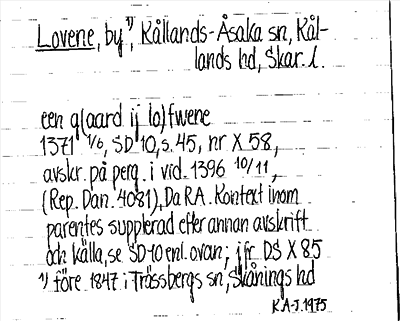 Lovene, by ¹), Kållands-Åsaka sn, Kål-
lands hd, Skar. l.
een g(aard ij lo)fwene
1371 1/6, SD 10, s. 45, nr X 58,
avskr. på perg. i vid. 1396 10/11,
(Rep. Dan. 4081), Da RA. Kontext inom
parentes supplerad efter annan avskrift
och källa, se SD 10 enl. ovan; jfr DS X 85
¹) före 1847 i Trässbergs sn, Skånings hd
K.A-J. 1975